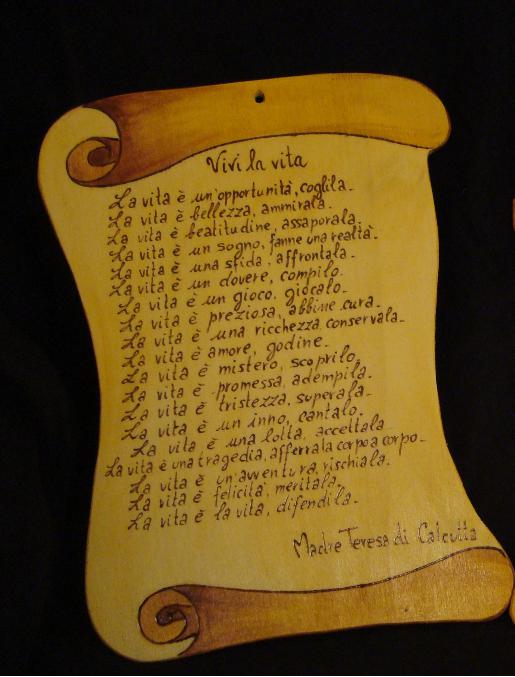 Vivi la vita
La vita è un'opportunità, coglila.
La vita è bellezza, ammirala.
La vita è beatitudine, assaporala.
La vita è un sogno, fanne una realtà.
La vita è una sfida, affrontala.
La vita è un dovere, compilo.
La vita è un gioco, giocalo.
La vita è preziosa, abbine cura.
La vita è una ricchezza, conservala.
La vita è amore, godine.
La vita è mistero, scoprilo.
La vita è promessa, adempila.
La vita è tristezza, superala.
La vita è un inno, cantalo.
La vita è una lotta, accettala
La vita è una tragedia, afferrala corpo a corpo.
La vita è un'avventura, rischiala.
La vita è felicità, meritala.
La vita è la vita, difendila.
Madre Teresa di Calcutta